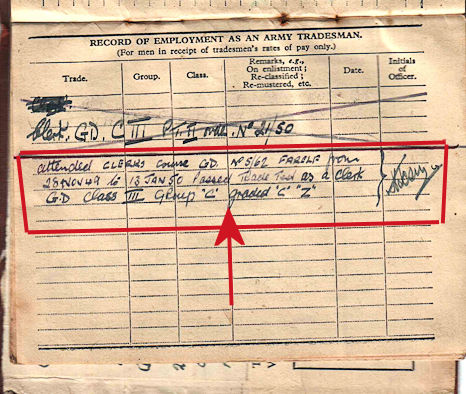 RECORD OF EMPLOYMENT AS AN ARMY TRADESMAN.
(For men in receipt of tradesmen's rates of pay only.)
Trade. Group. Class. Remarks, e.g., On enlistment; Re-classified; Re-mustered, etc. Date. Initials of Officer.
Clerk. G.D. C III P.T. II Nº 21/50
attended CLERKS Course GD. Nº 5/62 FARELF from
25 NOV 49 to 13 JAN 50 Passed Trade Test as a clerk
G.D Class III Group "C" graded "C" "Z"